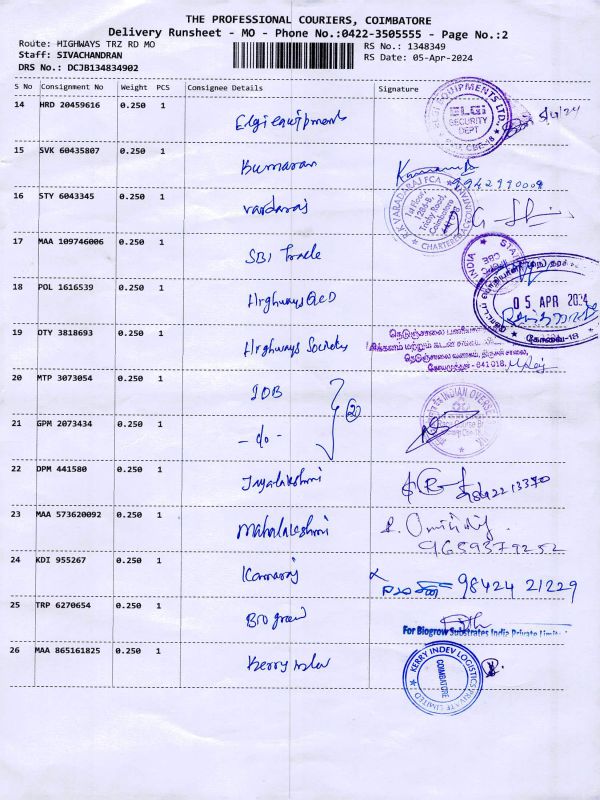 THE PROFESSIONAL COURIERS, COIMBATORE
Delivery Runsheet - MO - Phone No.:0422-3505555 - Page No.:2
Route: HIGHWAYS TRZ RD MO
RS No.: 1348349
Staff: SIVACHANDRAN
RS Date: 05-Apr-2024
DRS No.: DCJB134834902
S No Consignment No Weight PCS Consignee Details Signature
14 HRD 20459616 0.250 1 Elgi equipments
ELGI EQUIPMENTS LTD.
ELGI
SECURITY
DEPT
5/4/24
15 SVK 60435807 0.250 1 Kumaran
16 STY 6043345 0.250 1 Vardaraj
1st Floor,
Trichy Road,
Coimbatore
CHARTERED
17 MAA 109746006 0.250 1 SBI Trade
INDIA
CBE
18 POL 1616539 0.250 1 Highways
05 APR 2024
கோவை-18
19 DTY 3818693 0.250 1 Highways Society
20 MTP 3073054 0.250 1 IOB
②
INDIAN OVERSE
21 GPM 2073434 0.250 1 - do -
22 DPM 441580 0.250 1 Jayalakshmi
23 MAA 573620092 0.250 1 Mahalakshmi
9659379252
24 KDI 955267 0.250 1 Kamaraj
98424 21229
25 TRP 6270654 0.250 1 Bio grow
For Biogrow Substrates India Private Limite
26 MAA 865161825 0.250 1 Kerry Indev
KERRY INDEV LOGISTICS PRIVATE LIMITED
COIMBATORE